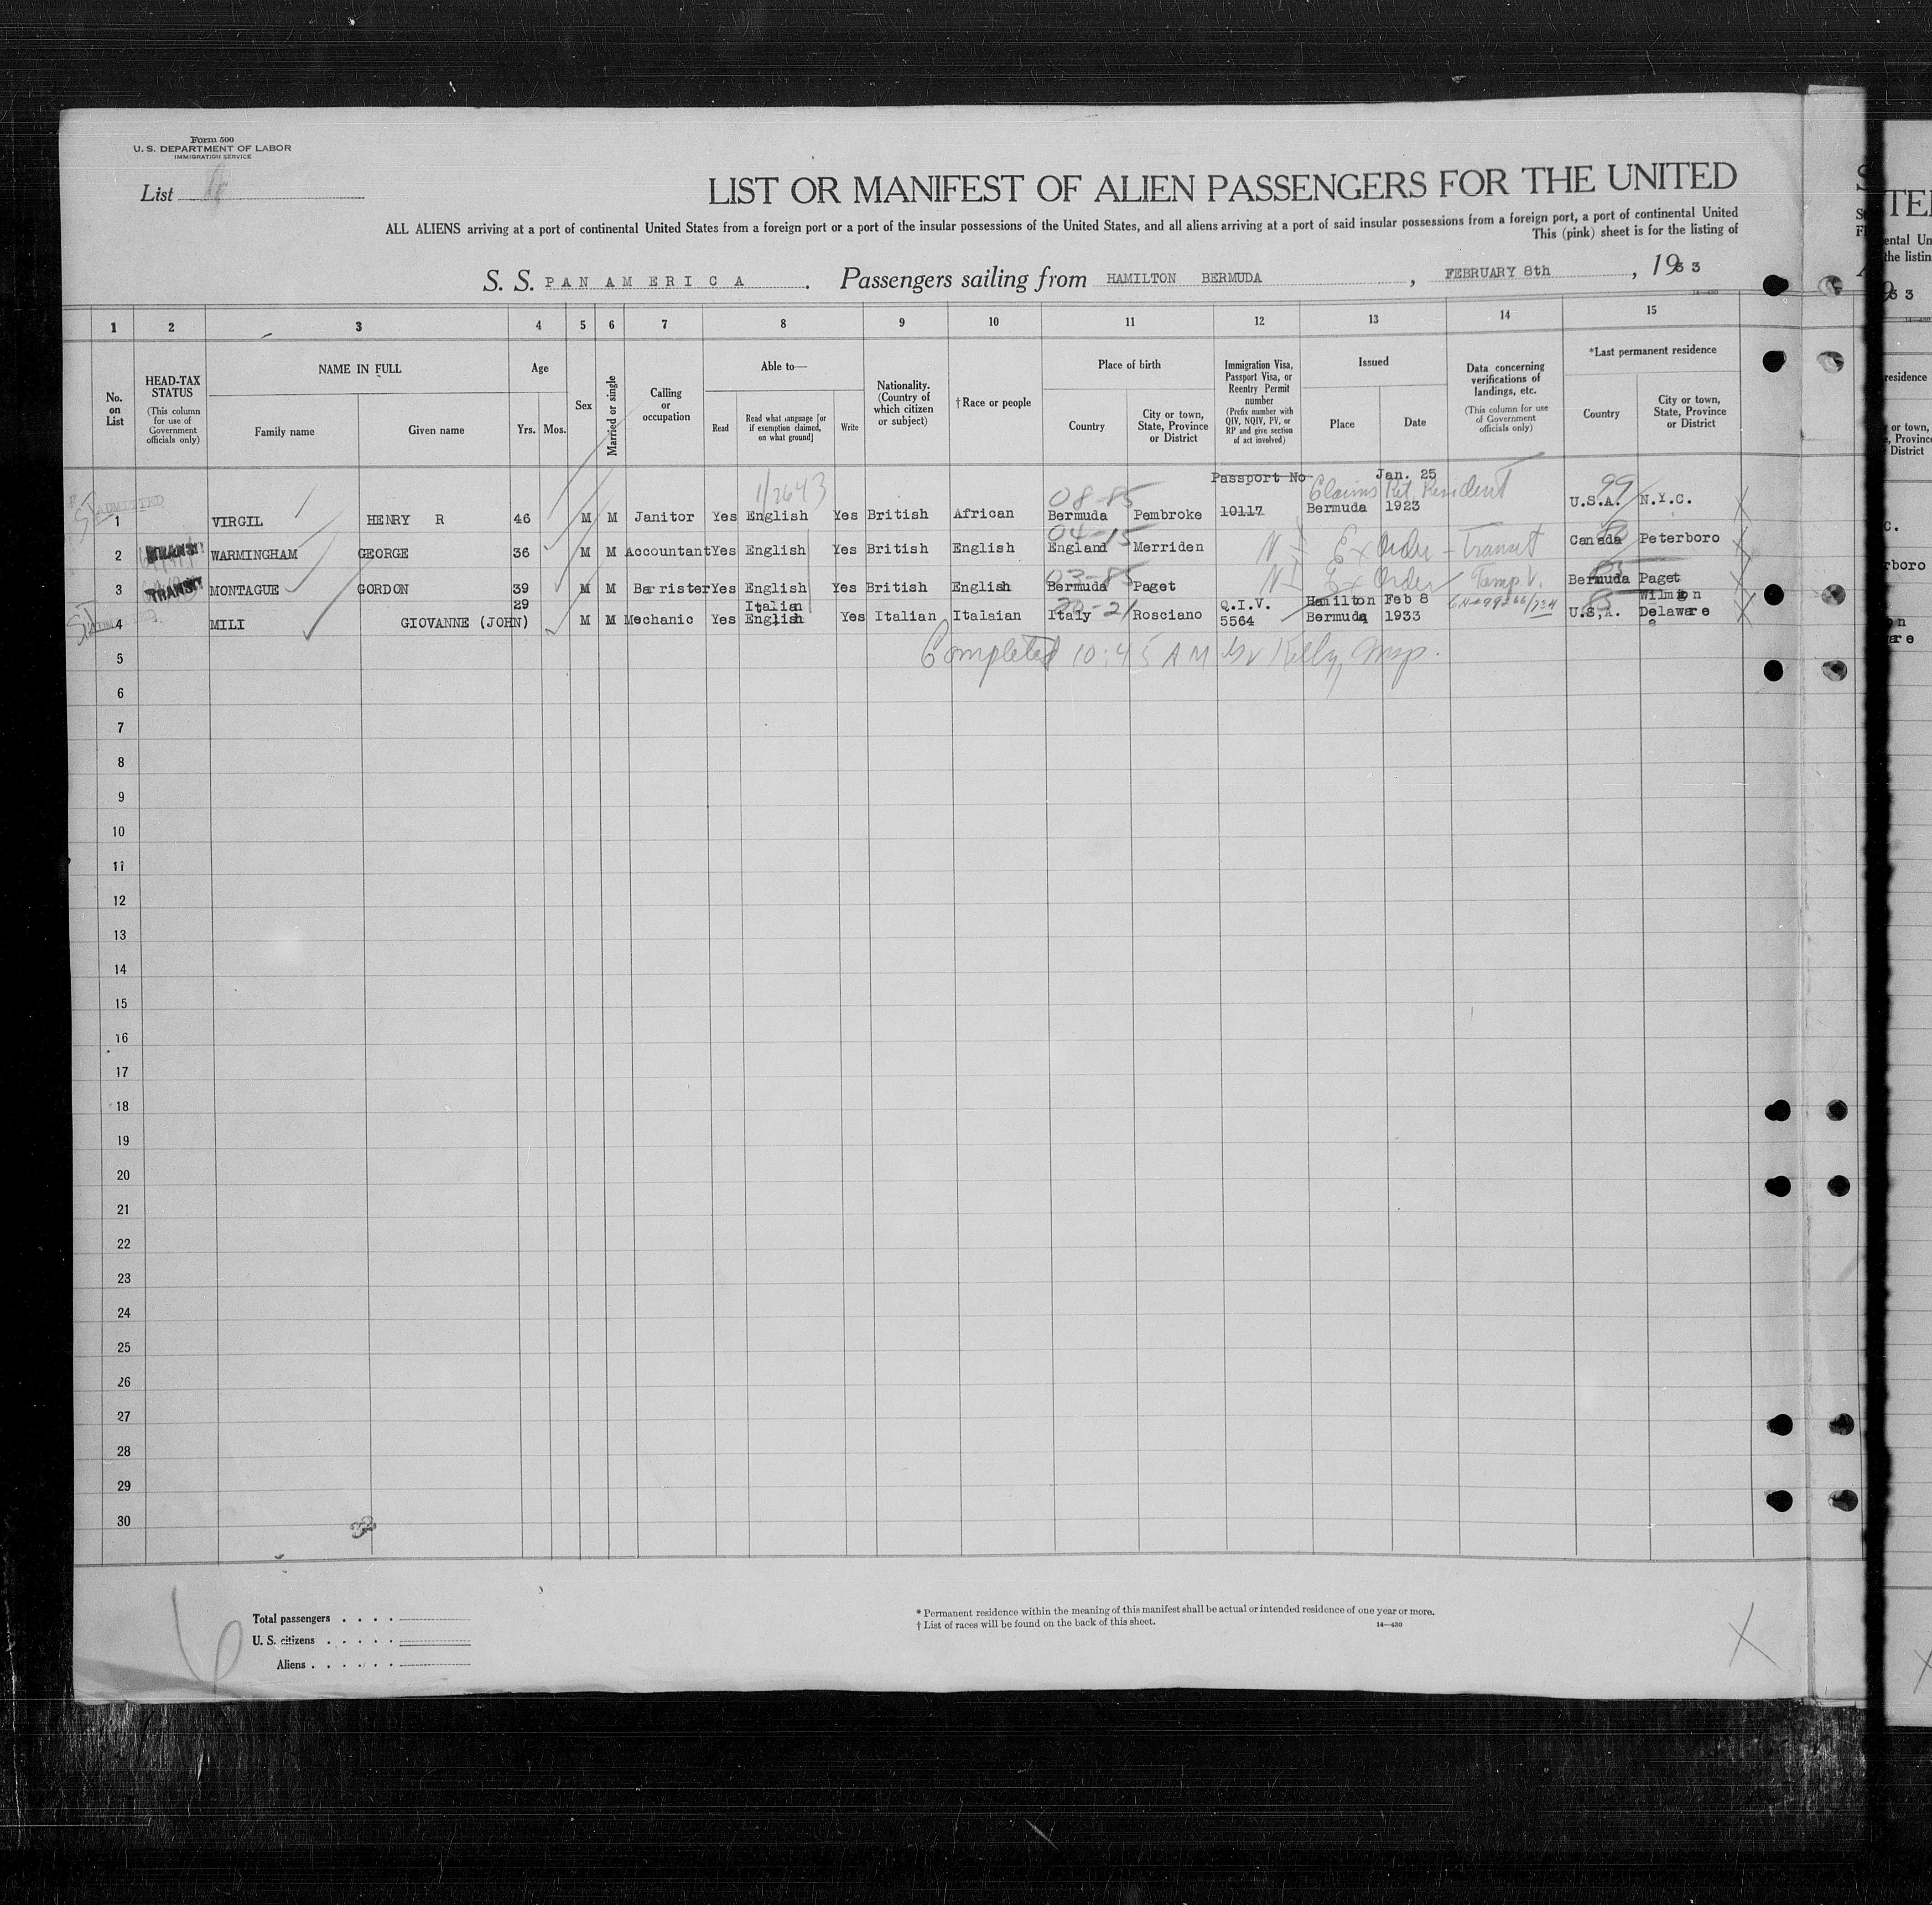 Form 500
U. S. DEPARTMENT OF LABOR
IMMIGRATION SERVICE
List
LIST OR MANIFEST OF ALIEN PASSENGERS FOR THE UNITED
ALL ALIENS arriving at a port of continental United States from a foreign port or a port of the insular possessions of the United States, and all aliens arriving at a port of said insular possessions from a foreign port, a port of continental United
This (pink) sheet is for the listing of
S. S. PAN AMERICA. Passengers sailing from HAMILTON BERMUDA, FEBRUARY 8th, 1933
1 2 3 4 5 6 7 8 9 10 11 12 13 14 15
No. on List
HEAD-TAX STATUS
(This column for use of Government officials only)
NAME IN FULL
Family name
Given name
Age
Yrs. Mos.
Sex
Married or single
Calling or occupation
Able to—
Read
Read what language [or if exemption claimed, on what ground]
Write
Nationality. (Country of which citizen or subject)
†Race or people
Place of birth
Country
City or town, State, Province or District
Immigration Visa, Passport Visa, or Reentry Permit number
(Prefix number with QIV, NQIV, PV, or RP and give section of act involved)
Issued
Place
Date
Data concerning verifications of landings, etc.
(This column for use of Government officials only)
*Last permanent residence
Country
City or town, State, Province or District
1/2643
Passport No
Jan. 25
Claims Ret. Resident
08-85
99
ADMITTED
1 VIRGIL HENRY R 46 M M Janitor Yes English Yes British African Bermuda Pembroke 10117 Bermuda 1923 U.S.A. N.Y.C.
04-15
2 TRANSIT WARMINGHAM GEORGE 36 M M Accountant Yes English Yes British English England Merriden Ex Order - Transit Canada Peterboro
03-85
3 TRANSIT MONTAGUE GORDON 39 M M Barrister Yes English Yes British English Bermuda Paget Ex Order Temp. V. Bermuda Paget
29 Italian Q.I.V. Hamilton Feb 8
4 MILI GIOVANNE (JOHN) M M Mechanic Yes English Yes Italian Italaian Italy Rosciano 5564 Bermuda 1933 U.S,A. Delaware
Completed 10:45 AM Kelly, Insp.
5
6
7
8
9
10
11
12
13
14
15
16
17
18
19
20
21
22
23
24
25
26
27
28
29
30
Total passengers . . . .
U. S. citizens . . . . .
Aliens . . . . . .
* Permanent residence within the meaning of this manifest shall be actual or intended residence of one year or more.
† List of races will be found on the back of this sheet.
14—430